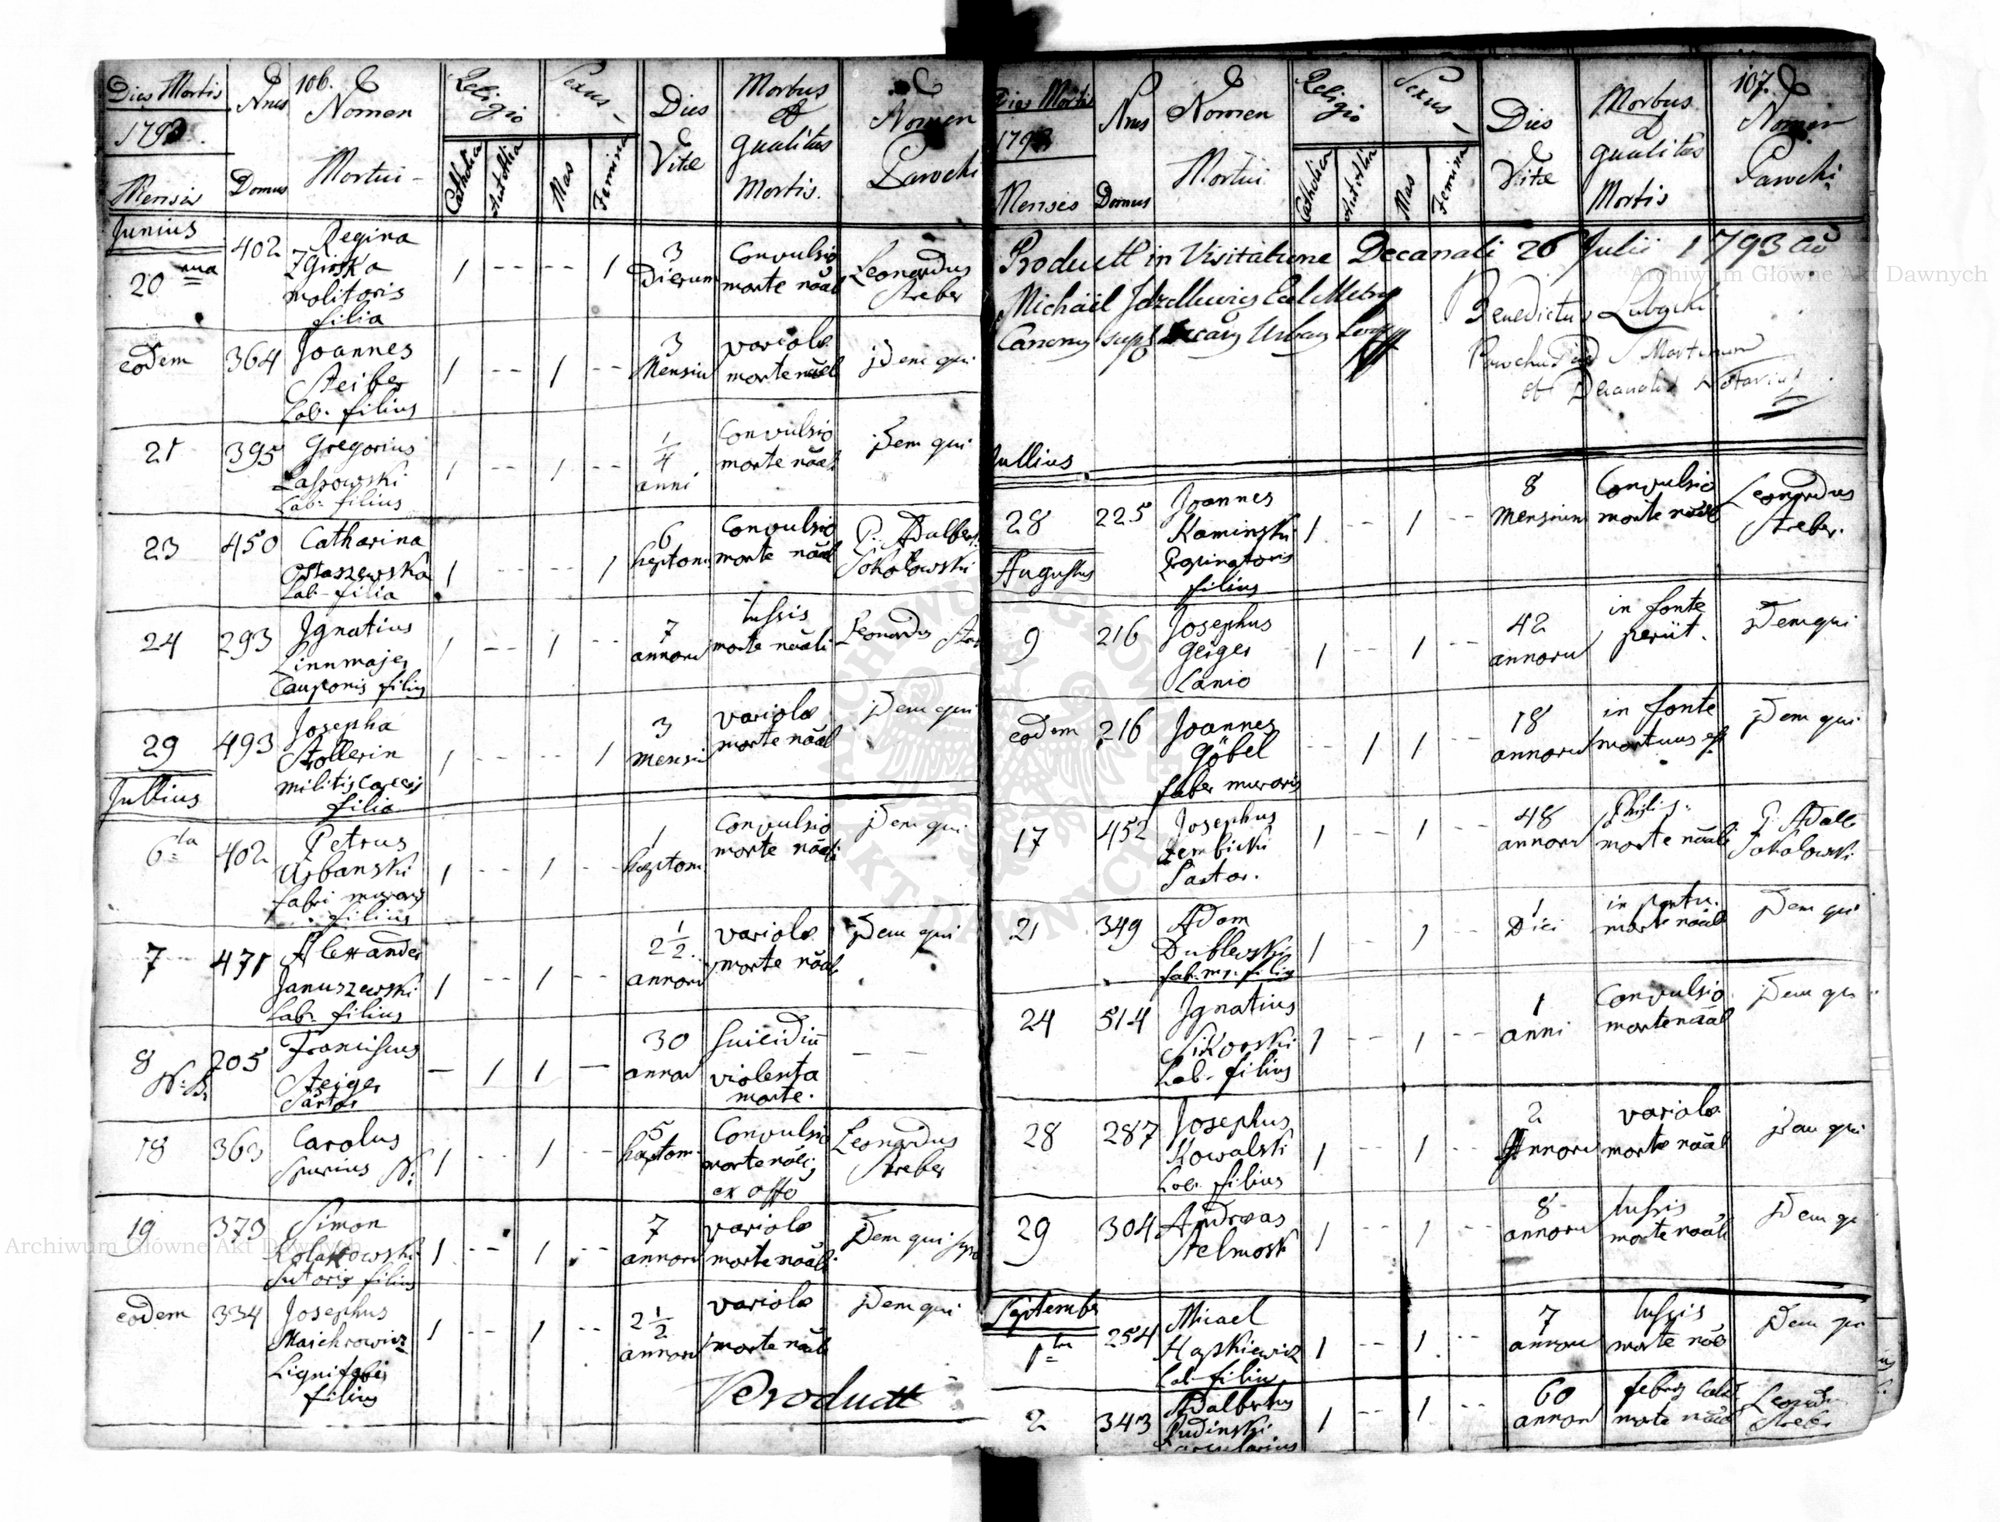 106.
Dies Mortis
1793.
Mensis
Nrus
Domus
&
Nomen
Mortui
Religio
Catholica
Sexus
Mas
Femina
Dies
&
Vitæ
Morbus
et
qualitas
Mortis.
&
Nomen
Parochi
Junius
20
402
Regina
molitoris
filia
1 -- -- 1
3
Dierum
Convulsio
morte nãal
Leonardus
Streber
eodem
364
Joannes
Steiber
Lab. filius
1 -- 1 --
3
Mensiu
variolæ
morte nãal
jdem qui
21
395
Gregorius
Lab. filius
1 -- 1 --
1/4
anni
Convulsio
morte nãal
jdem qui
23
450
Catharina
Ostaszewska
Lab. filia
1 1
6
heptom
Convulsio
morte nãal
P: Adalber:
Sokołowski
24
293
Jgnatius
Linnmajer
Cauponis filius
1 -- 1 --
7
annoru
tussis
morte nãali
Leonardus
29
493
Josepha
Stollerin
militis
filia
1 -- -- 1
3
mensiu
variolæ
morte nãal
jdem qui
Jullius
6ta
402
Petrus
Urbanski
fabri
filius
1 -- 1 --
1
heptom
Convulsio
morte nãali
jdem qui
7
471
Alexander
Januszewski
Lab. filius
1 -- 1 --
2 1/2
annoru
variolæ
morte nãal
jdem qui
8
N: B:
205
Franciscus
Steiger
Sartor
- 1 1 -
30
annoru
suicidiu
violenta
morte.
- -
18
363
Carolus
Spurius N:
1 -- 1 --
5
heptom
Convulsio
morte nãali
ex offo
Leonardus
Streber
19
373
Simon
Sutoris filius
1 -- 1 --
7
annoru
variolæ
morte nãal
jdem qui supra
eodem
334
Josephus
Majchrowicz
Lignifabri
filius
1 -- 1 --
2 1/2
annoru
variolæ
morte nãal
jdem qui
Product
107.
Dies Mortis
1793
Menses
Nrus
Domus
&
Nomen
Mortui
Religio
Catholica
Sexus
Mas
Femina
Dies
&
Vitæ
Morbus
&
qualitas
Mortis
&
Nomen
Parochi
Product in Visitatione Decanali 26 Julii 1793
Michaël
Benedictus
et Decanalis Notarius
Jullius
28
225
Joannes
Kaminski
filius
1 -- 1 --
8
mensium
Convulsio
morte nãal
Leonardus
Streber.
Augustus
9
216
Josephus
Geiger
Lanio
1 -- 1 --
42
annoru
in fonte
periit.
jdem qui
eodem
216
Joannes
Göbel
faber muraris
- 1 1 --
18
annoru
in fonte
mortuus est
jdem qui
17
452
Josephus
Zembicki
Sartor.
1 -- 1 --
48
annoru
Phtisis:
morte nãali
P: Adalb
Sokolowski
21
349
Adam
Dublewski
fab. mr. filius
1 -- 1 --
1
Diei
in partu.
morte nãal
jdem qui
24
514
Jgnatius
Sikorski
Lab. filius
1 -- 1 --
1
anni
Convulsio
morte nãal
jdem qui
28
287
Josephus
Kowalski
Lab. filius
1 -- 1 --
2
Annoru
variolæ
morte nãal
jdem qui
29
304
Andreas
Stelmosk
1 -- 1 --
8
annoru
tussis
morte nãali
jdem qi
September
1
254
Micael
Haskiewicz
Lab. filius
1 -- 1 --
7
annoru
tussis
morte nãal
jdem qui
2
343
Adalbertus
Rudinski
1 -- 1 --
60
annoru
febris
morte nãal
Leonardus
Streber
Archiwum Główne Akt Dawnych
Archiwum Główne Akt Dawnych
ARCHIWUM GŁÓWNE AKT DAWNYCH